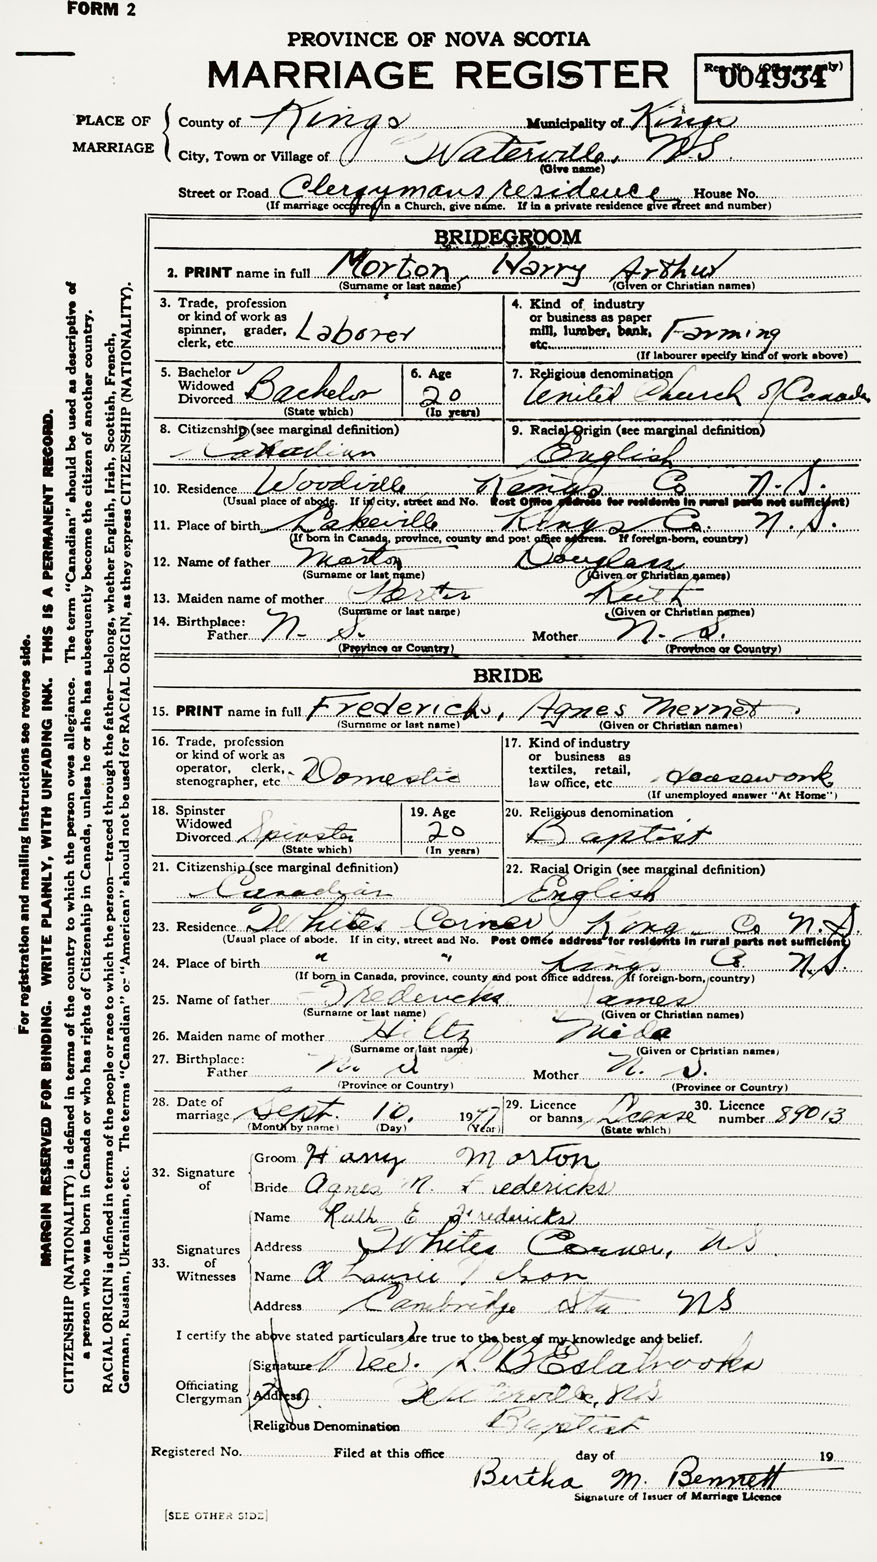 FORM 2
PROVINCE OF NOVA SCOTIA
MARRIAGE REGISTER
Reg. No. (Office use only)
004934
PLACE OF MARRIAGE
County of Kings Municipality of Kings
City, Town or Village of Waterville, N.S.
(Give name)
Street or Road Clergymans residence House No.
(If marriage occurred in a Church, give name. If in a private residence give street and number)
BRIDEGROOM
2. PRINT name in full Morton, Harry Arthur
(Surname or last name) (Given or Christian names)
3. Trade, profession or kind of work as spinner, grader, clerk, etc. Laborer
4. Kind of industry or business as paper mill, lumber, bank, etc. Farming
(If labourer specify kind of work above)
5. Bachelor Widowed Divorced Bachelor
(State which)
6. Age 20
(In years)
7. Religious denomination United Church of Canada
8. Citizenship (see marginal definition) Canadian
9. Racial Origin (see marginal definition) English
10. Residence Woodville, Kings Co. N.S.
(Usual place of abode. If in city, street and No. Post Office address for residents in rural parts not sufficient)
11. Place of birth Lakeville Kings Co. N.S.
(If born in Canada, province, county and post office address. If foreign-born, country)
12. Name of father Morton Douglass
(Surname or last name) (Given or Christian names)
13. Maiden name of mother Porter Ruth
(Surname or last name) (Given or Christian names)
14. Birthplace: Father N.S. Mother N.S.
(Province or Country) (Province or Country)
BRIDE
15. PRINT name in full Fredericks, Agnes
(Surname or last name) (Given or Christian names)
16. Trade, profession or kind of work as operator, clerk, stenographer, etc. Domestic
17. Kind of industry or business as textiles, retail, law office, etc. Housework
(If unemployed answer "At Home")
18. Spinster Widowed Divorced Spinster
(State which)
19. Age 20
(In years)
20. Religious denomination Baptist
21. Citizenship (see marginal definition) Canadian
22. Racial Origin (see marginal definition) English
23. Residence Whites Corner, Kings Co N.S.
(Usual place of abode. If in city, street and No. Post Office address for residents in rural parts not sufficient)
24. Place of birth " " Kings Co. N.S.
(If born in Canada, province, county and post office address. If foreign-born, country)
25. Name of father Fredericks James
(Surname or last name) (Given or Christian names)
26. Maiden name of mother Hiltz Meda
(Surname or last name) (Given or Christian names)
27. Birthplace: Father N.S Mother N.S.
(Province or Country) (Province or Country)
28. Date of marriage Sept. 10, 19
(Month by name) (Day) (Year)
29. Licence or banns License
(State which)
30. Licence number 89013
32. Signature of
Groom Harry Morton
Bride Agnes M. Fredericks
33. Signatures of Witnesses
Name Ruth E Fredericks
Address Whites Corner, NS
Name Laurie
Address Cambridge Sta NS
I certify the above stated particulars are true to the best of my knowledge and belief.
Officiating Clergyman
Signature Rev. L. B Eslabrooks
Address Waterville, NS
Religious Denomination Baptist
Registered No. Filed at this office day of 19
Bertha M. Bennett
Signature of Issuer of Marriage Licence
[SEE OTHER SIDE]
For registration and mailing instructions see reverse side.
MARGIN RESERVED FOR BINDING. WRITE PLAINLY, WITH UNFADING INK. THIS IS A PERMANENT RECORD.
CITIZENSHIP (NATIONALITY) is defined in terms of the country to which the person owes allegiance. The term "Canadian" should be used as descriptive of
a person who was born in Canada or who has rights of Citizenship in Canada, unless he or she has subsequently become the citizen of another country.
RACIAL ORIGIN is defined in terms of the people or race to which the person—traced through the father—belongs, whether English, Irish, Scottish, French,
German, Russian, Ukrainian, etc. The terms "Canadian" or "American" should not be used for RACIAL ORIGIN, as they express CITIZENSHIP (NATIONALITY).